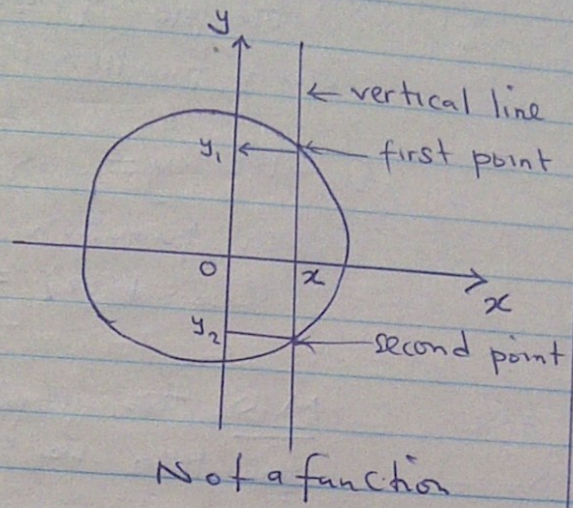 y
vertical line
y₁
first point
0
x
x
y₂
second point
Not a function